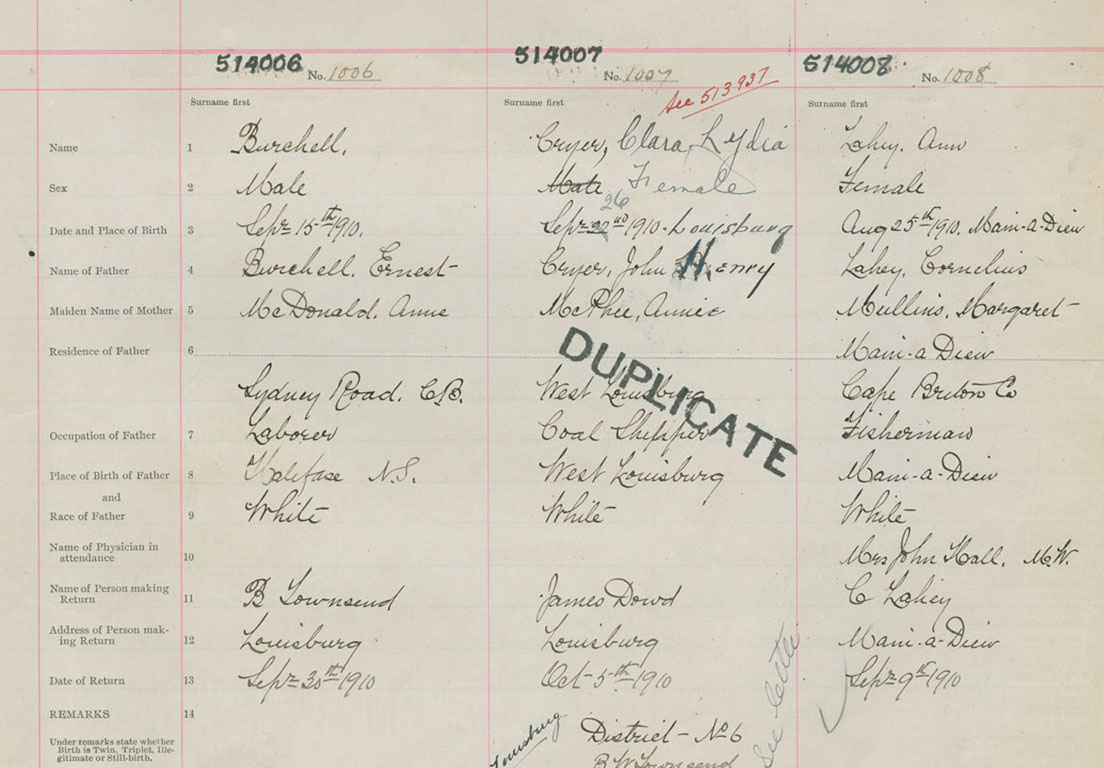 514006 No. 1006 514007 No. 1007 514008 No. 1008
See 513937
Surname first Surname first Surname first
Name 1 Burchell. Cryer, Clara Lydia Lahey. Ann
Sex 2 Male Male Female Female
Date and Place of Birth 3 Sept 15th 1910. Sept 22nd 26 1910. Louisburg Aug 25th 1910. Main-a-Dieu
Name of Father 4 Burchell. Ernest Cryer, John Henry Lahey, Cornelius
Maiden Name of Mother 5 McDonald. Annie McPhee, Annie Mullins, Margaret
Residence of Father 6 Main-a Dieu
Sydney Road. C.B. West Louisburg Cape Breton Co
DUPLICATE
Occupation of Father 7 Laborer Coal Shipper Fisherman
Place of Birth of Father 8 Halifax N.S. West Louisburg Main-a-Dieu
and
Race of Father 9 White White White
Name of Physician in
attendance 10 Mrs John Hall. M.W.
Name of Person making
Return 11 B Townsend James Dowd C Lahey
Address of Person mak-
ing Return 12 Louisburg Louisburg Main-a-Dieu
Date of Return 13 Sept 30th 1910 Oct 5th 1910 Sept 9th 1910
See letter
REMARKS 14
Louisburg District No 6
Under remarks state whether
Birth is Twin, Triplet, Ille-
gitimate or Still-birth.
B W Townsend